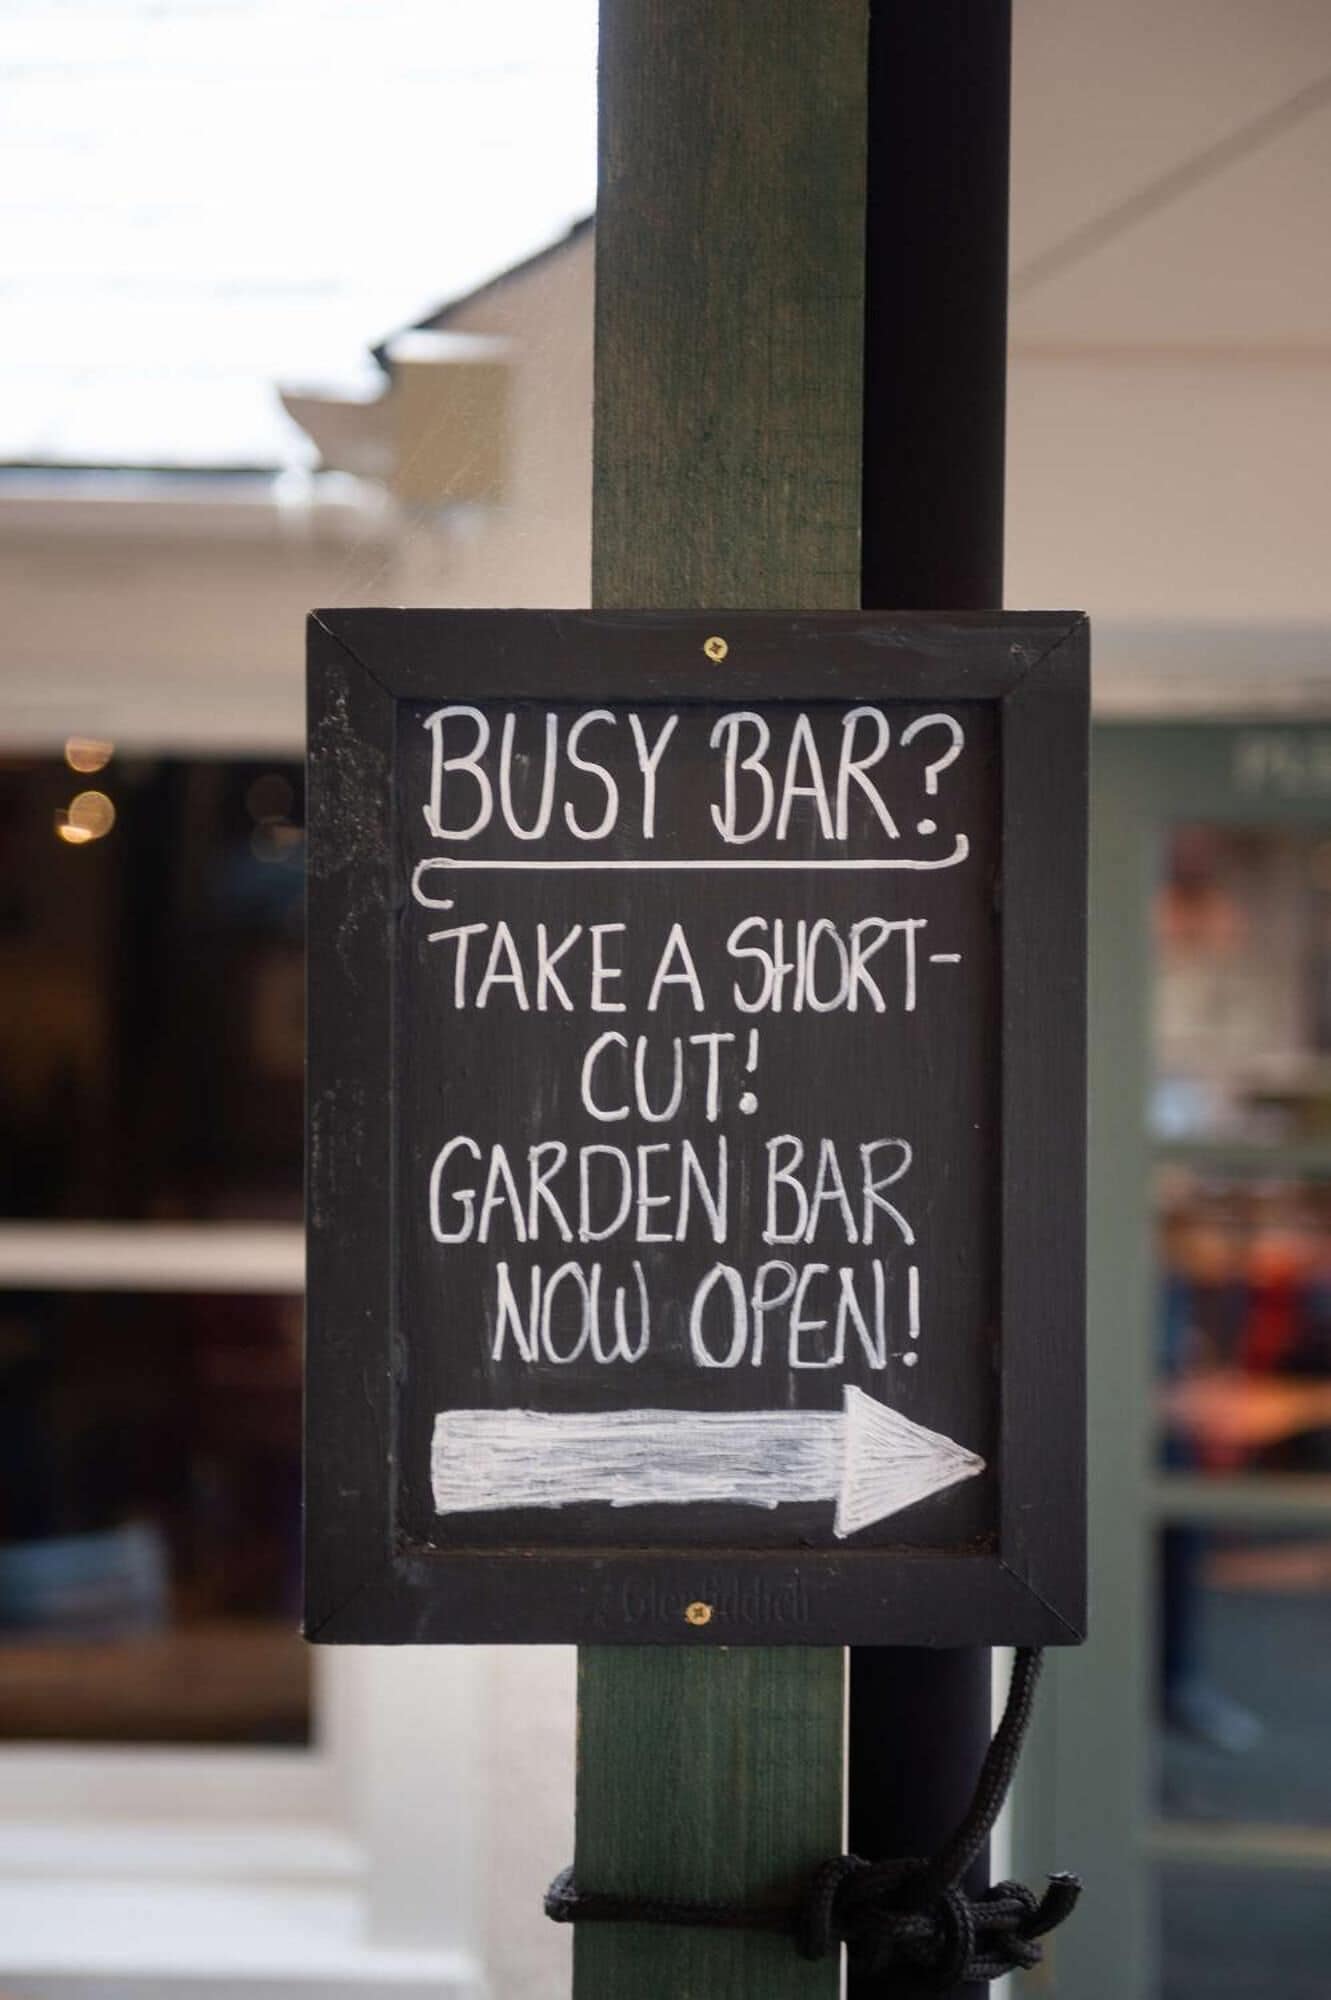 BUSY BAR?
TAKE A SHORT-
CUT!
GARDEN BAR
NOW OPEN!